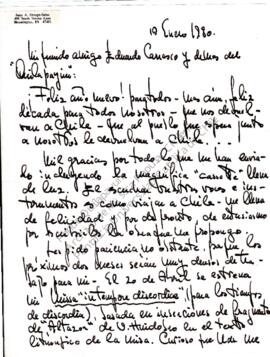 Juan A. Orrego-Salas
10 Enero 1980.
Mi querido amigo Eduardo Carrasco y demás del
Quilapayún:
Feliz año nuevo! para todos - más aún, feliz
década para todos nosotros - que nos devuel-
van a Chile - que al pueblo que sufre junto
a nosotros le devuelvan a Chile...
Mil gracias por todo lo que me han envia-
do incluyendo la magnífica
de luz. escuchar vuestras voces e ins-
trumentos es como viajar a Chile - me llena
de felicidad y por de pronto, de entusiasmo
por escribirles la obra que me propongo.
Les pido paciencia no obstante, ya que los
próximos dos meses serán muy densos de tra-
bajo para mí. El 20 de Abril se estrena
mi "Missa in tempore discordiae" (para los tiempos
de discordia), basada en inserciones de fragmentos
de "Altazor" de V. Huidobro en el texto
litúrgico de la misa. Curioso que